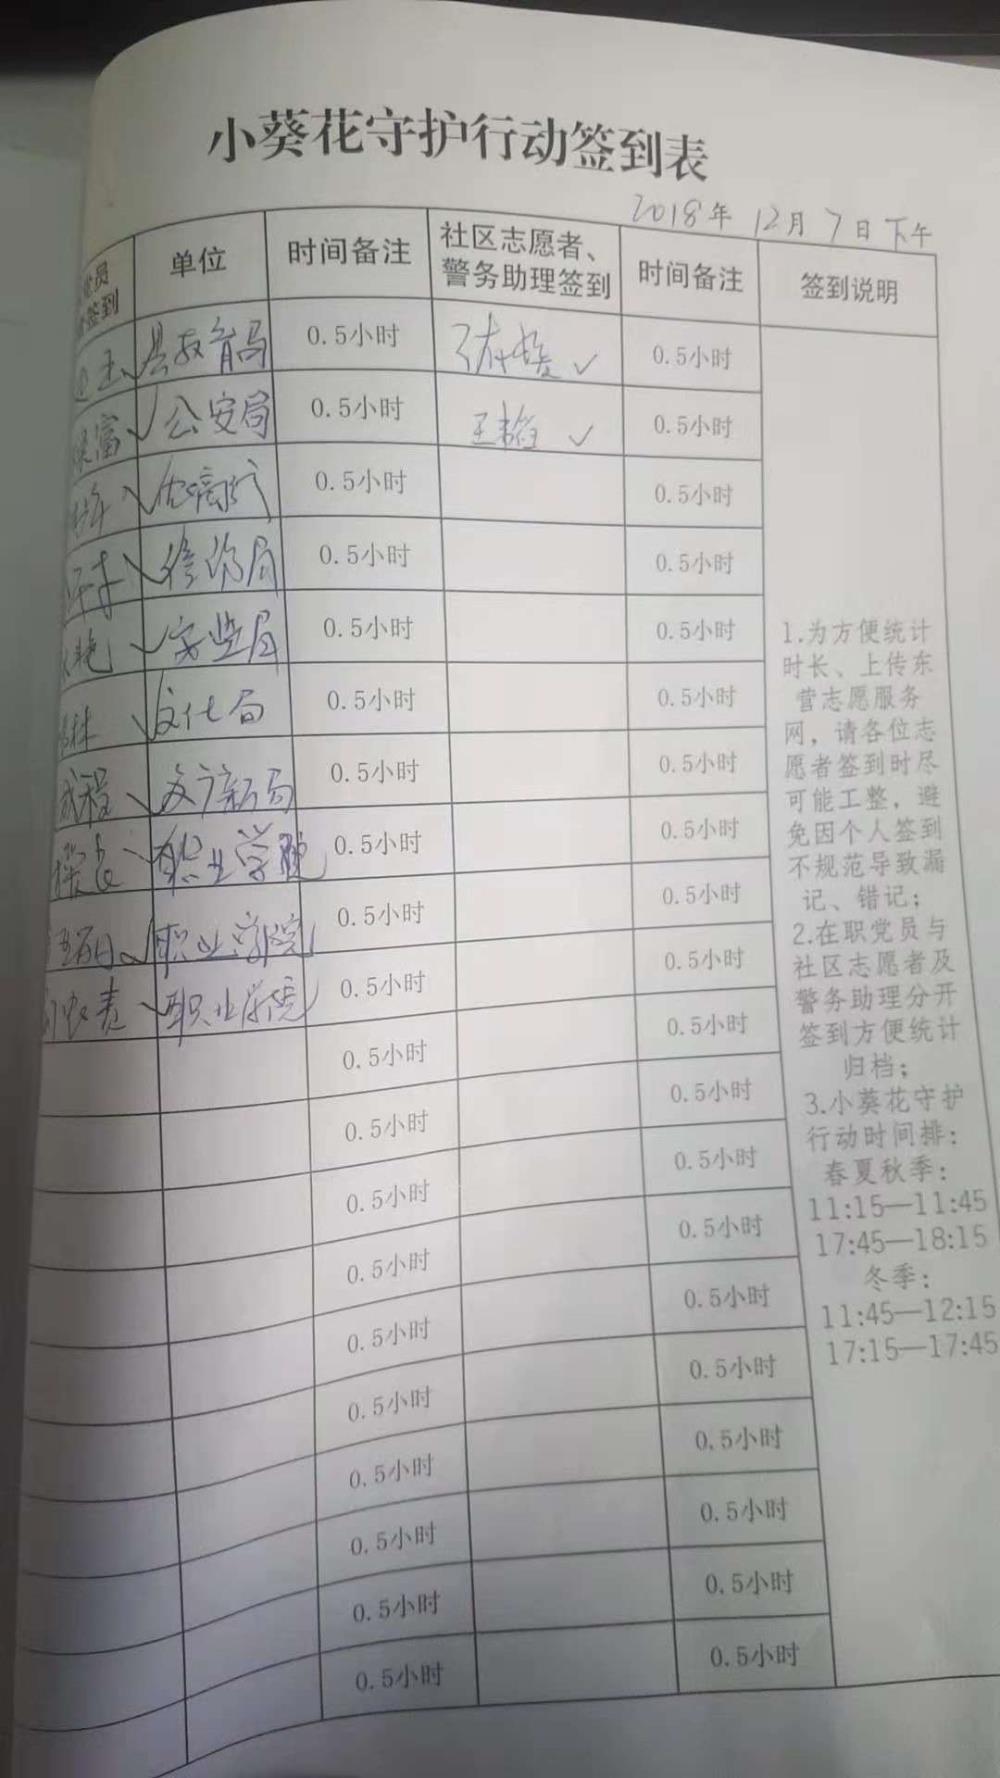 小葵花守护行动签到表
2018年 12月 7日 下午
员 单位 时间备注 社区志愿者、 时间备注 签到说明
签到 警务助理签到
县教育局 0.5小时 0.5小时
富 公安局 0.5小时 王 0.5小时
0.5小时 0.5小时
局 0.5小时 0.5小时
艳 安监局 0.5小时 0.5小时
林 文化局 0.5小时 0.5小时
成程 文广新局 0.5小时 0.5小时
职业学院 0.5小时 0.5小时
职业学院 0.5小时 0.5小时
职业学院 0.5小时 0.5小时
0.5小时 0.5小时
0.5小时 0.5小时
0.5小时 0.5小时
0.5小时 0.5小时
0.5小时 0.5小时
0.5小时 0.5小时
0.5小时 0.5小时
0.5小时 0.5小时
0.5小时 0.5小时
0.5小时 0.5小时
1.为方便统计
时长、上传东
营志愿服务
网，请各位志
愿者签到时尽
可能工整，避
免因个人签到
不规范导致漏
记、错记；
2.在职党员与
社区志愿者及
警务助理分开
签到方便统计
归档；
3.小葵花守护
行动时间排：
春夏秋季：
11:15—11:45
17:45—18:15
冬季：
11:45—12:15
17:15—17:45